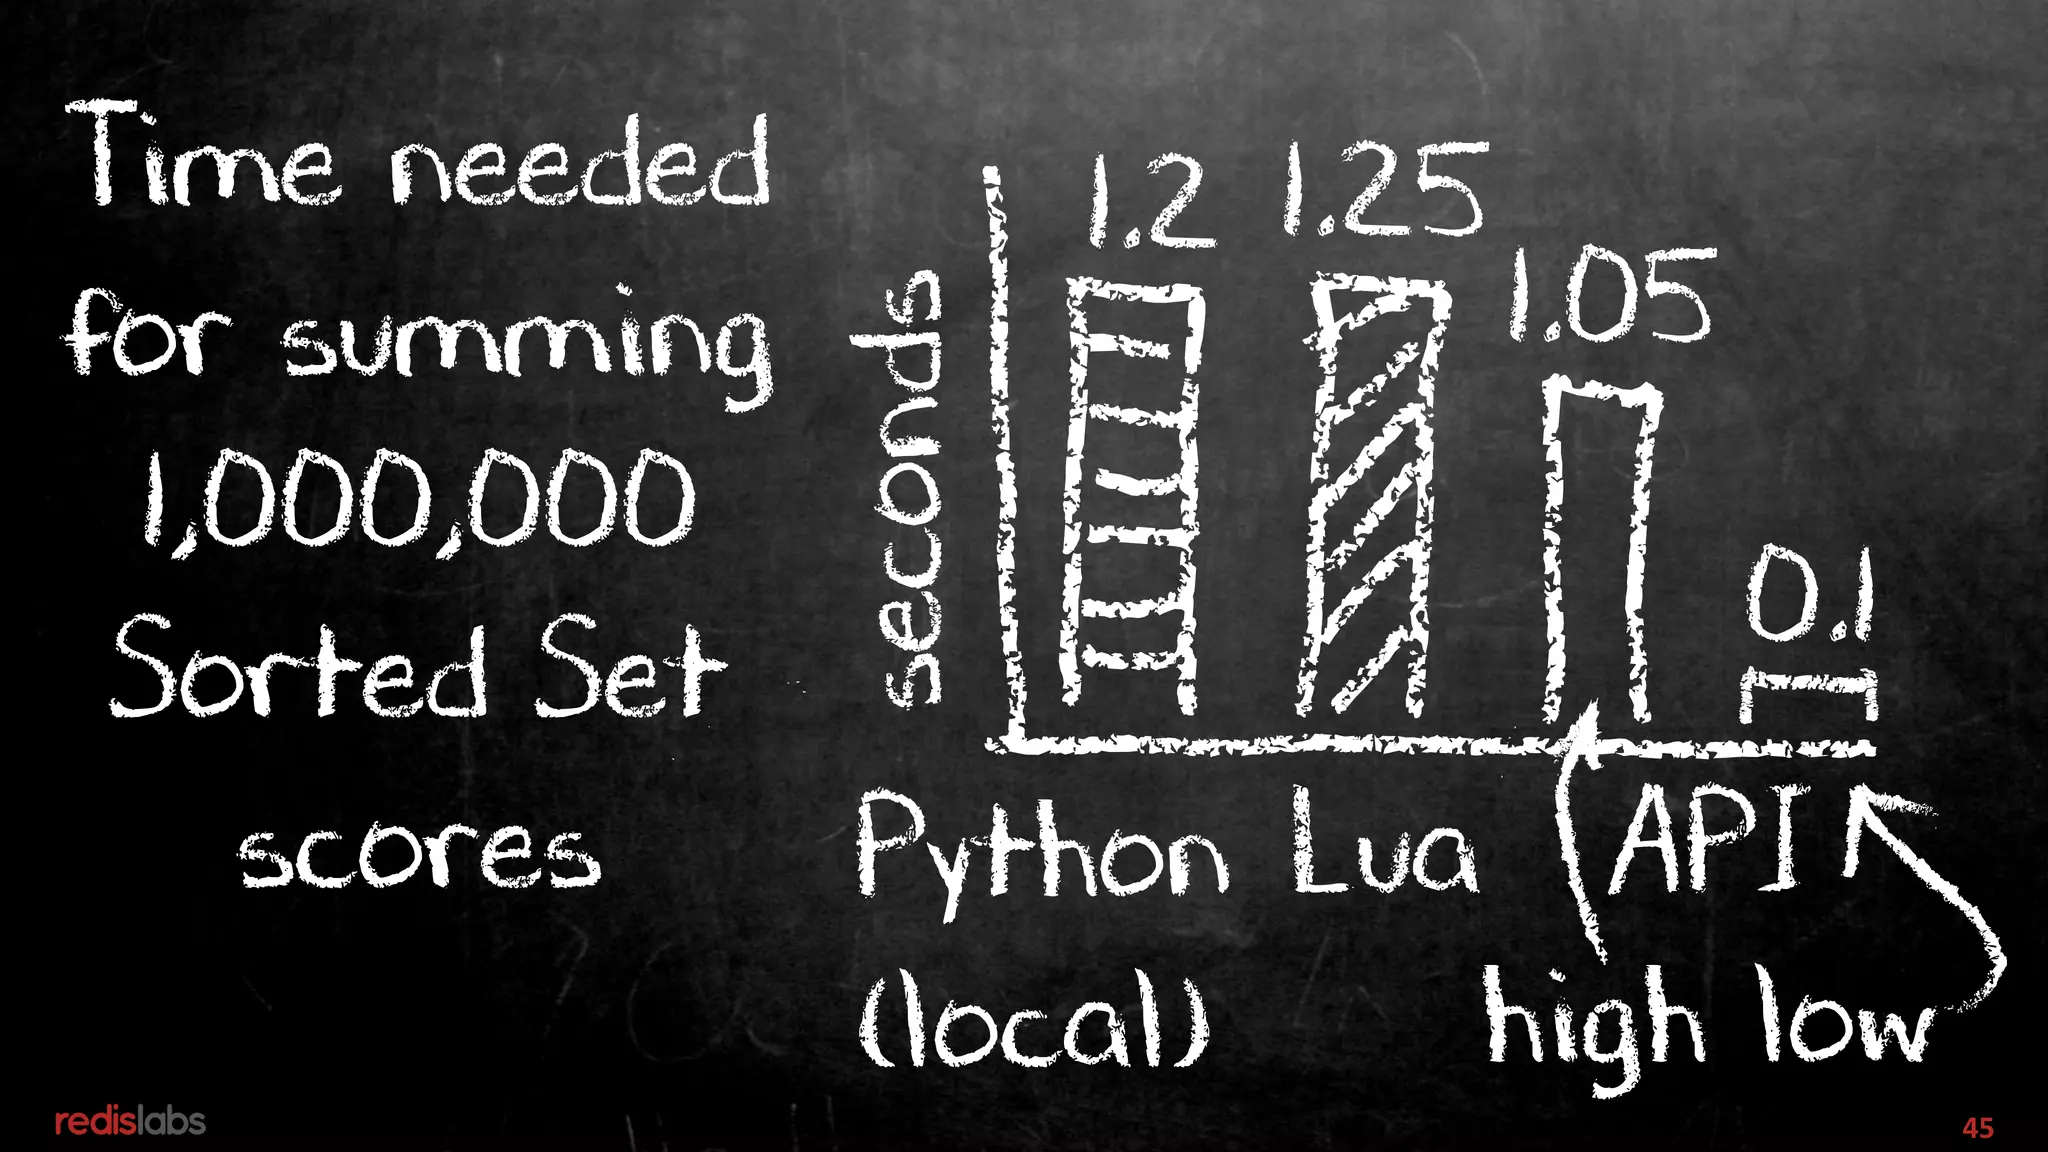 Time needed
for summing
1,000,000
Sorted Set
scores
seconds
1.2
1.25
1.05
0.1
Python Lua API
(local) high low
redislabs
45